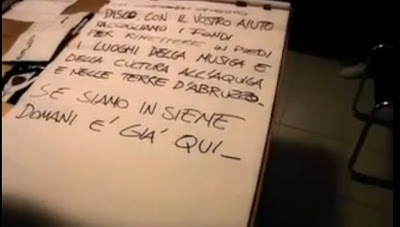 DISCO CON IL VOSTRO AIUTO
RACCOGLIAMO I FONDI
PER RIMETTERE IN PIEDI
I LUOGHI DELLA MUSICA E
DELLA CULTURA ALL'AQUILA
E NELLE TERRE D'ABRUZZO_
SE SIAMO INSIEME
DOMANI E' GIA' QUI_